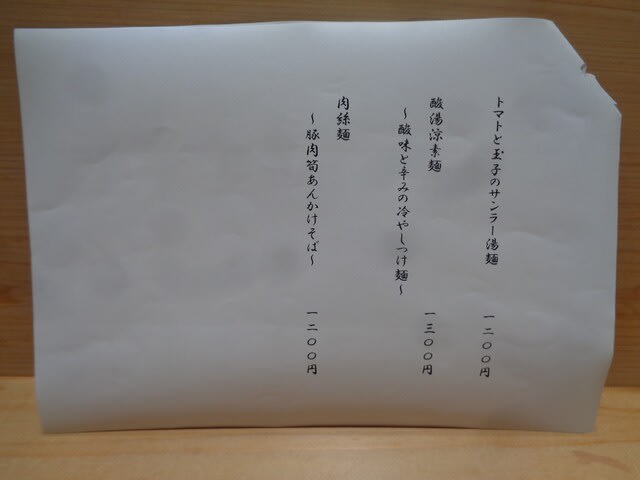 トマトと玉子のサンラー湯麺 一二〇〇円
酸湯涼素麺 一三〇〇円
〜酸味と辛みの冷やしつけ麺〜
肉絲麺
〜豚肉筍あんかけそば〜 一二〇〇円